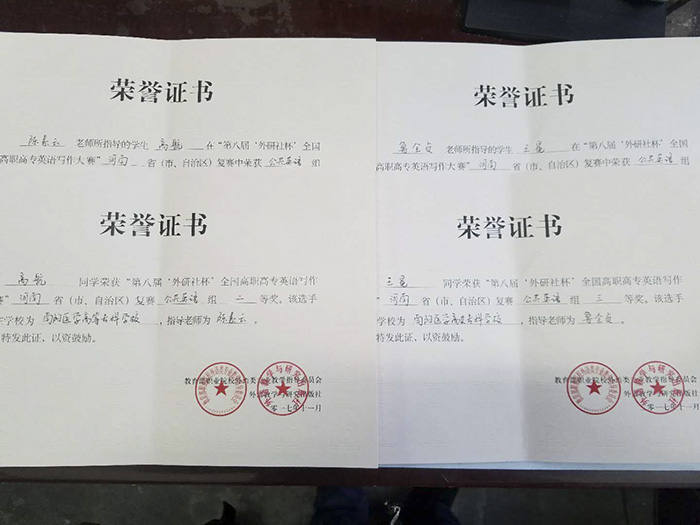 荣誉证书
陈素云 老师所指导的学生 高航 在“第八届‘外研社杯’全国
高职高专英语写作大赛”河南 省（市、自治区）复赛中荣获 公共英语 组
荣誉证书
高航 同学荣获“第八届‘外研社杯’全国高职高专英语写作
”河南 省（市、自治区）复赛 公共英语 组 二 等奖。该选手
学校为 南阳医学高等专科学校，指导老师为 陈素云。
特发此证、以资鼓励。
教育部职业院校外语类专业教学指导委员会
外语教学与研究出版社
二〇一七年十一月
荣誉证书
鲁全贞 老师所指导的学生 在“第八届‘外研社杯’全国
高职高专英语写作大赛”河南 省（市、自治区）复赛中荣获 公共英语 组
荣誉证书
同学荣获“第八届‘外研社杯’全国高职高专英语写作
”河南 省（市、自治区）复赛 公共英语 组 三 等奖。该选手
学校为 南阳医学高等专科学校，指导老师为 鲁全贞。
特发此证、以资鼓励。
教育部职业院校外语类专业教学指导委员会
外语教学与研究出版社
二〇一七年十一月